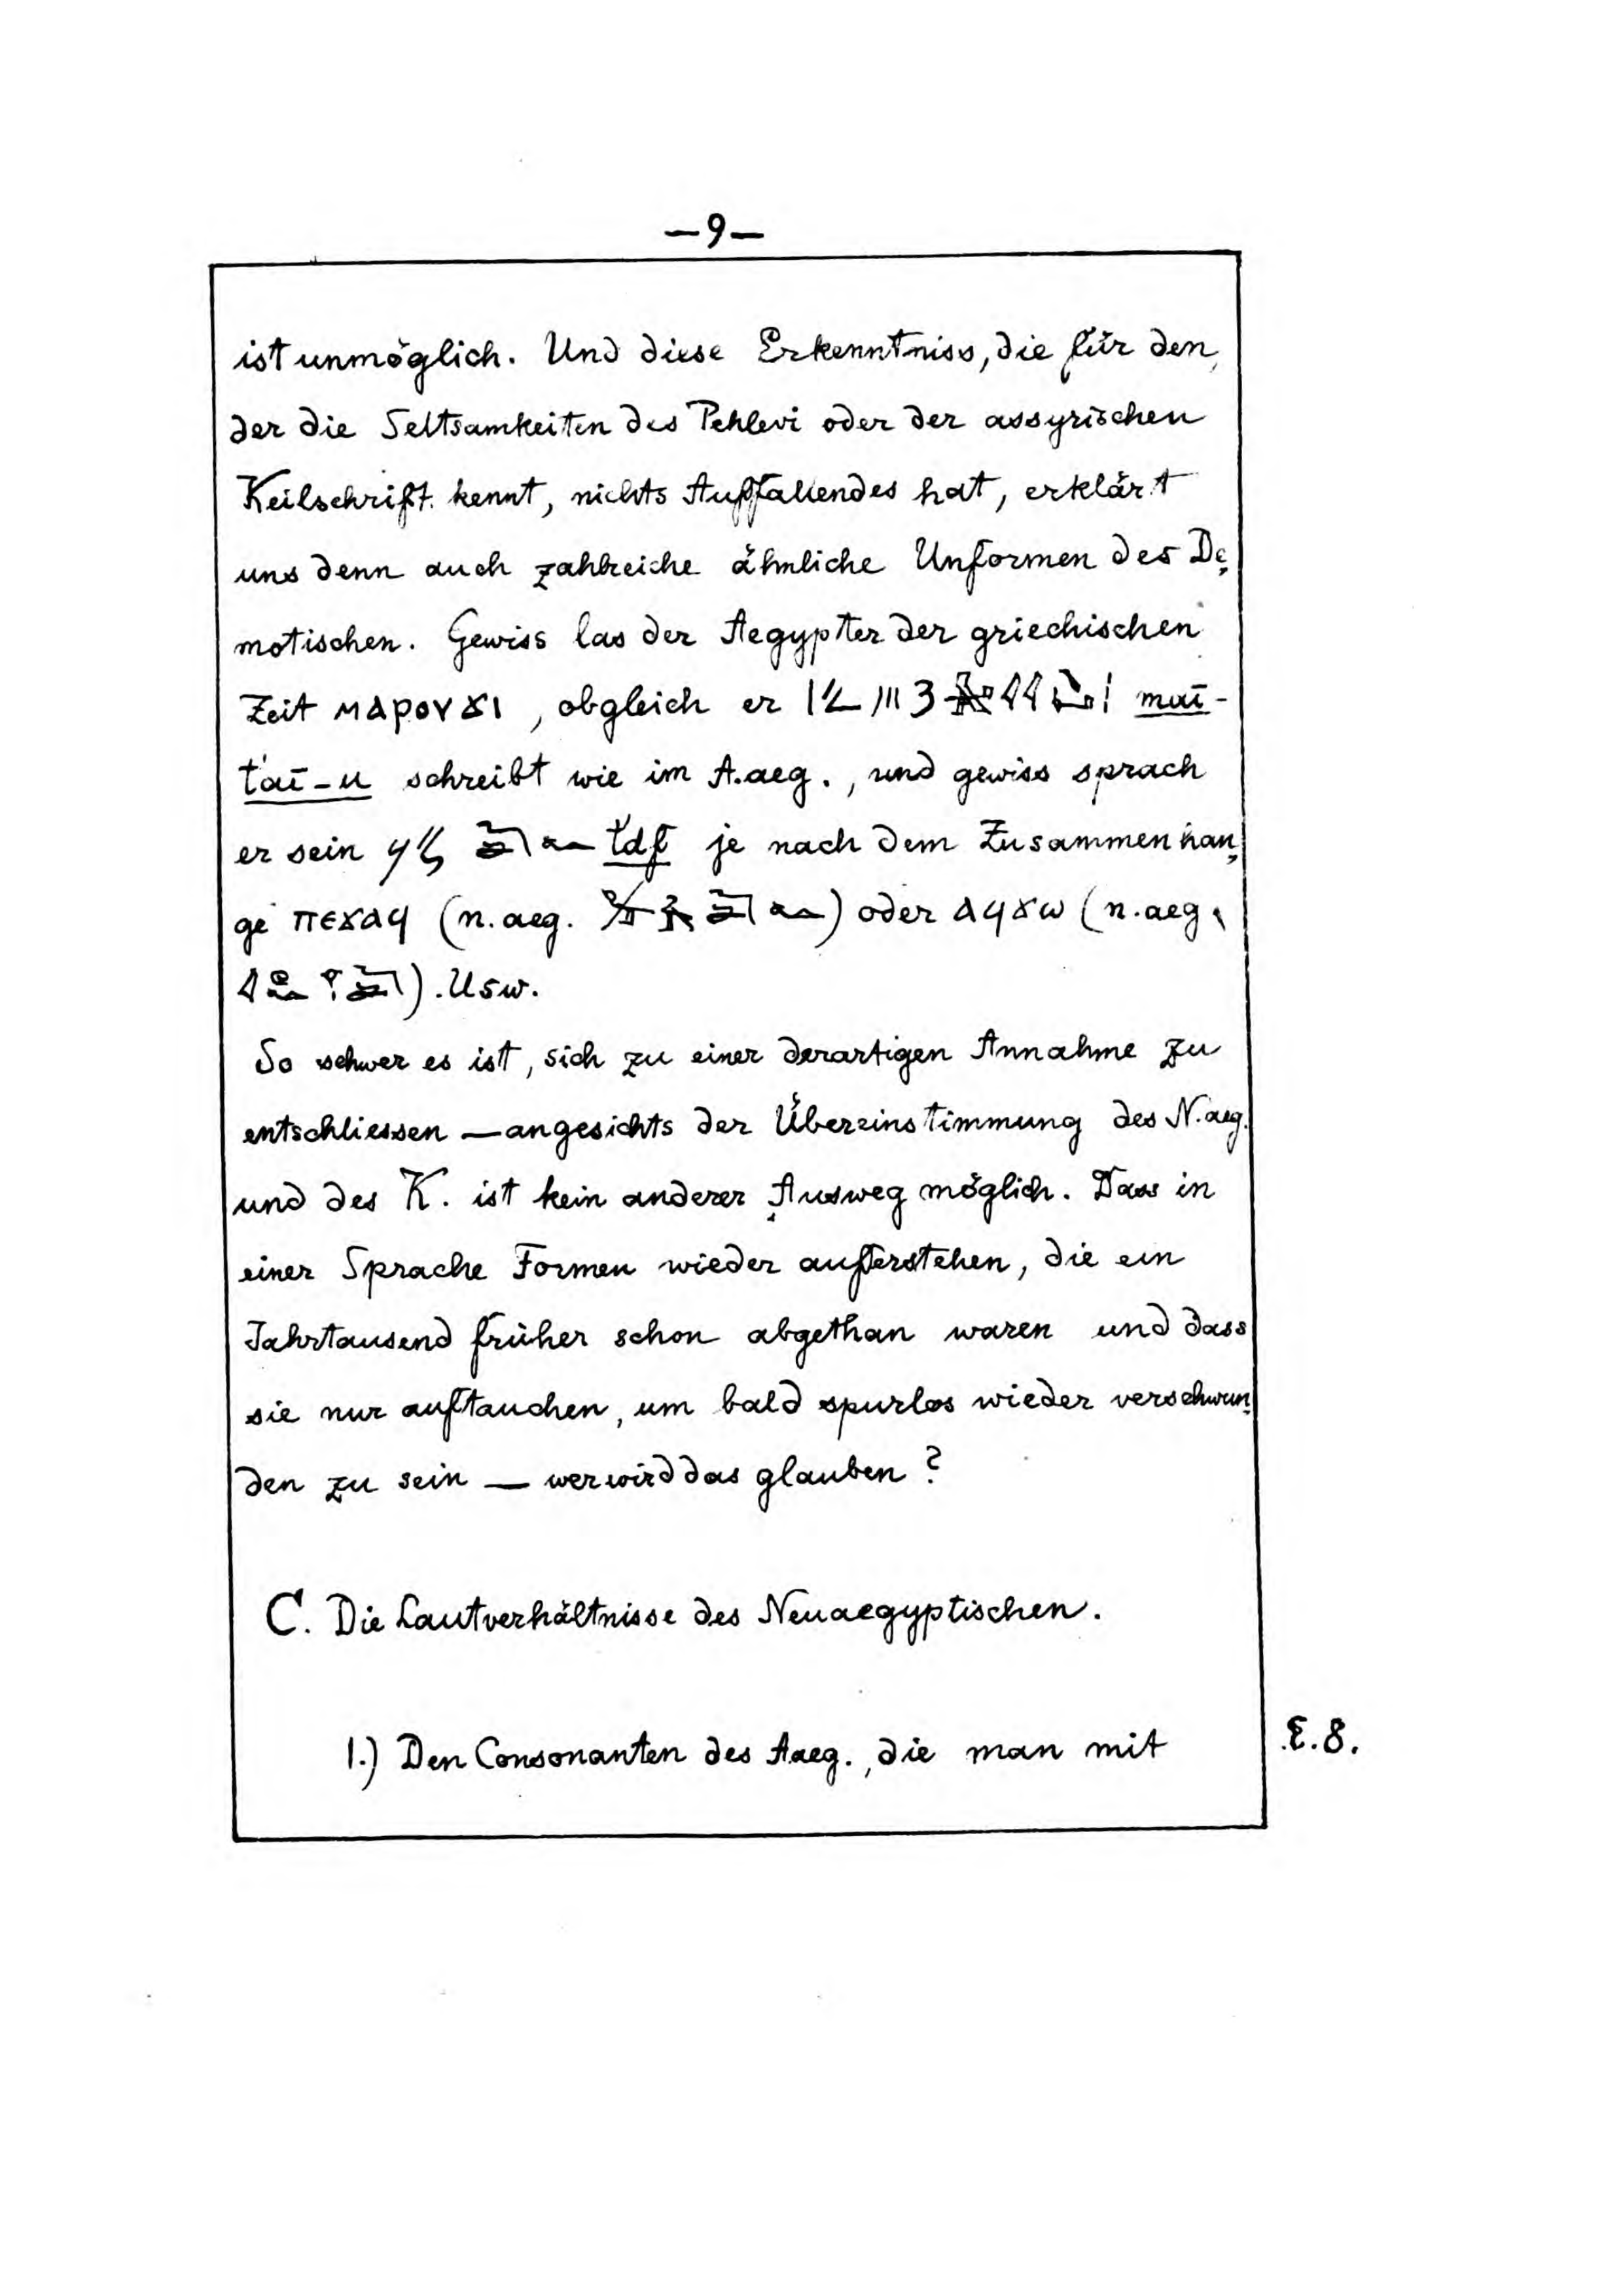 —9—
ist unmöglich. Und diese Erkenntniss, die für den,
der die Seltsamkeiten des Pehlevi oder der assyrischen
Keilschrift kennt, nichts Auffallendes hat, erklärt
uns denn auch zahlreiche ähnliche Unformen des De-
motischen. Gewiss las der Aegypter der griechischen
Zeit ⲙⲁⲣⲟⲩϫⲓ, obgleich er maī-
t'aī-u schreibt wie im A.aeg., und gewiss sprach
er sein t'df je nach dem Zusammenhan-
ge ⲡⲉϫⲁϥ (n.aeg. ) oder ⲁϥϫⲱ (n.aeg.
). Usw.
So schwer es ist, sich zu einer derartigen Annahme zu
entschliessen — angesichts der Übereinstimmung des N.aeg.
und des K. ist kein anderer Ausweg möglich. Dass in
einer Sprache Formen wieder auferstehen, die ein
Jahrtausend früher schon abgethan waren und dass
sie nur auftauchen, um bald spurlos wieder verschwun-
den zu sein — wer wird das glauben?
C. Die Lautverhältnisse des Neuaegyptischen.
1.) Den Consonanten des Aaeg., die man mit
E.8.